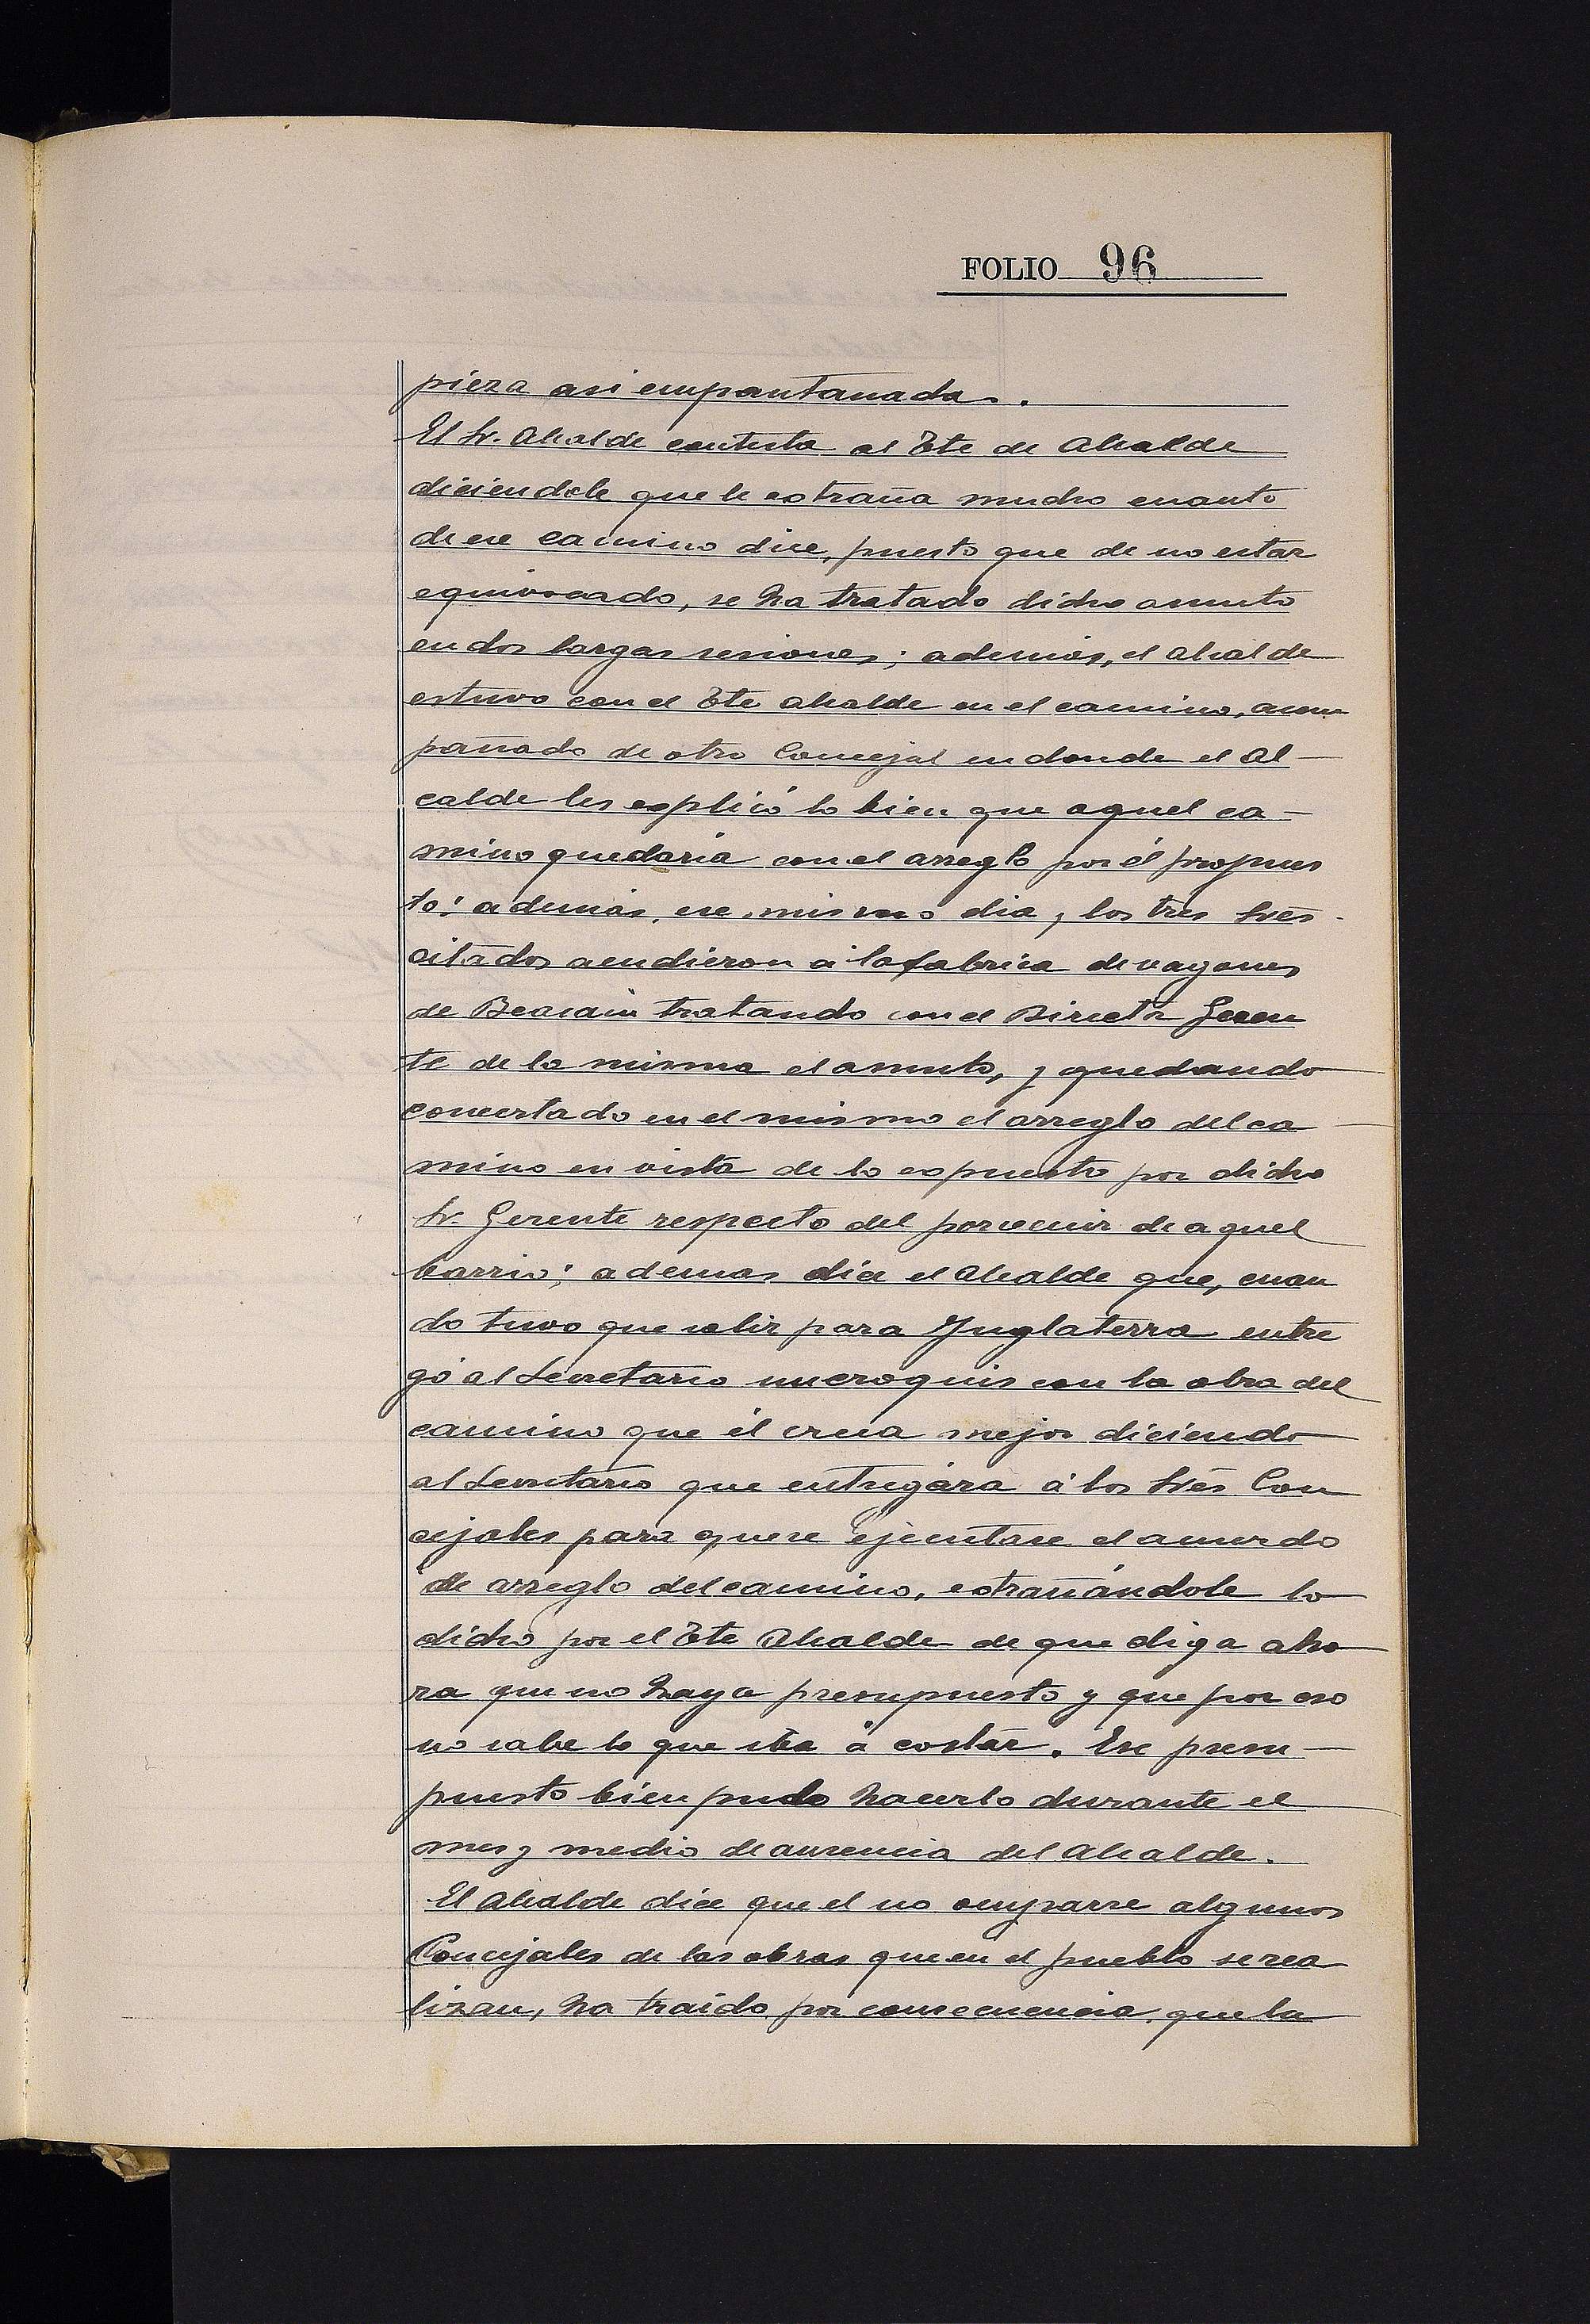 FOLIO 96
pieza asi empantanada.
El Sr. Alcalde contesta al Tte de Alcalde
diciendole que le estraña mucho cuanto
de ese camino dice, puesto que de no estar
equivocado, se ha tratado dicho asunto
en dos largas sesiones; además, el Alcalde
estuvo con el Tte Alcalde en el camino, acom
pañado de otro Concejal en donde el Al-
calde les esplicó lo bien que aquel ca-
mino quedaria con el arreglo por él propues
to; además, ese mismo dia, los tres Sres
citados acudieron á la fabrica de vagones
de Beasain tratando con el Director Geren
te de la misma el asunto, y quedando
concertado en el mismo el arreglo del ca
mino en vista de lo espuesto por dicho
Sr. Gerente respecto del porvenir de aquel
barrio; ademas dice el Alcalde que, cuan
do tuvo que salir para Inglaterra entre
gó al Secretario un croquis con la obra del
camino que él creia mejor diciendo
al Secretario que entregára á los Sres Con
cejales para que se ejecutase el acuerdo
de arreglo del camino, estrañándole lo
dicho por el Tte Alcalde de que diga aho
ra que no haya presupuesto y que por eso
no sabe lo que iba á costar. Ese presu-
puesto bien pudo hacerlo durante el
mes y medio de ausencia del Alcalde.
El Alcalde dice que el no ocuparse algunos
Concejales de las obras que en el pueblo se rea
lizan, ha traido por consecuencia, que la